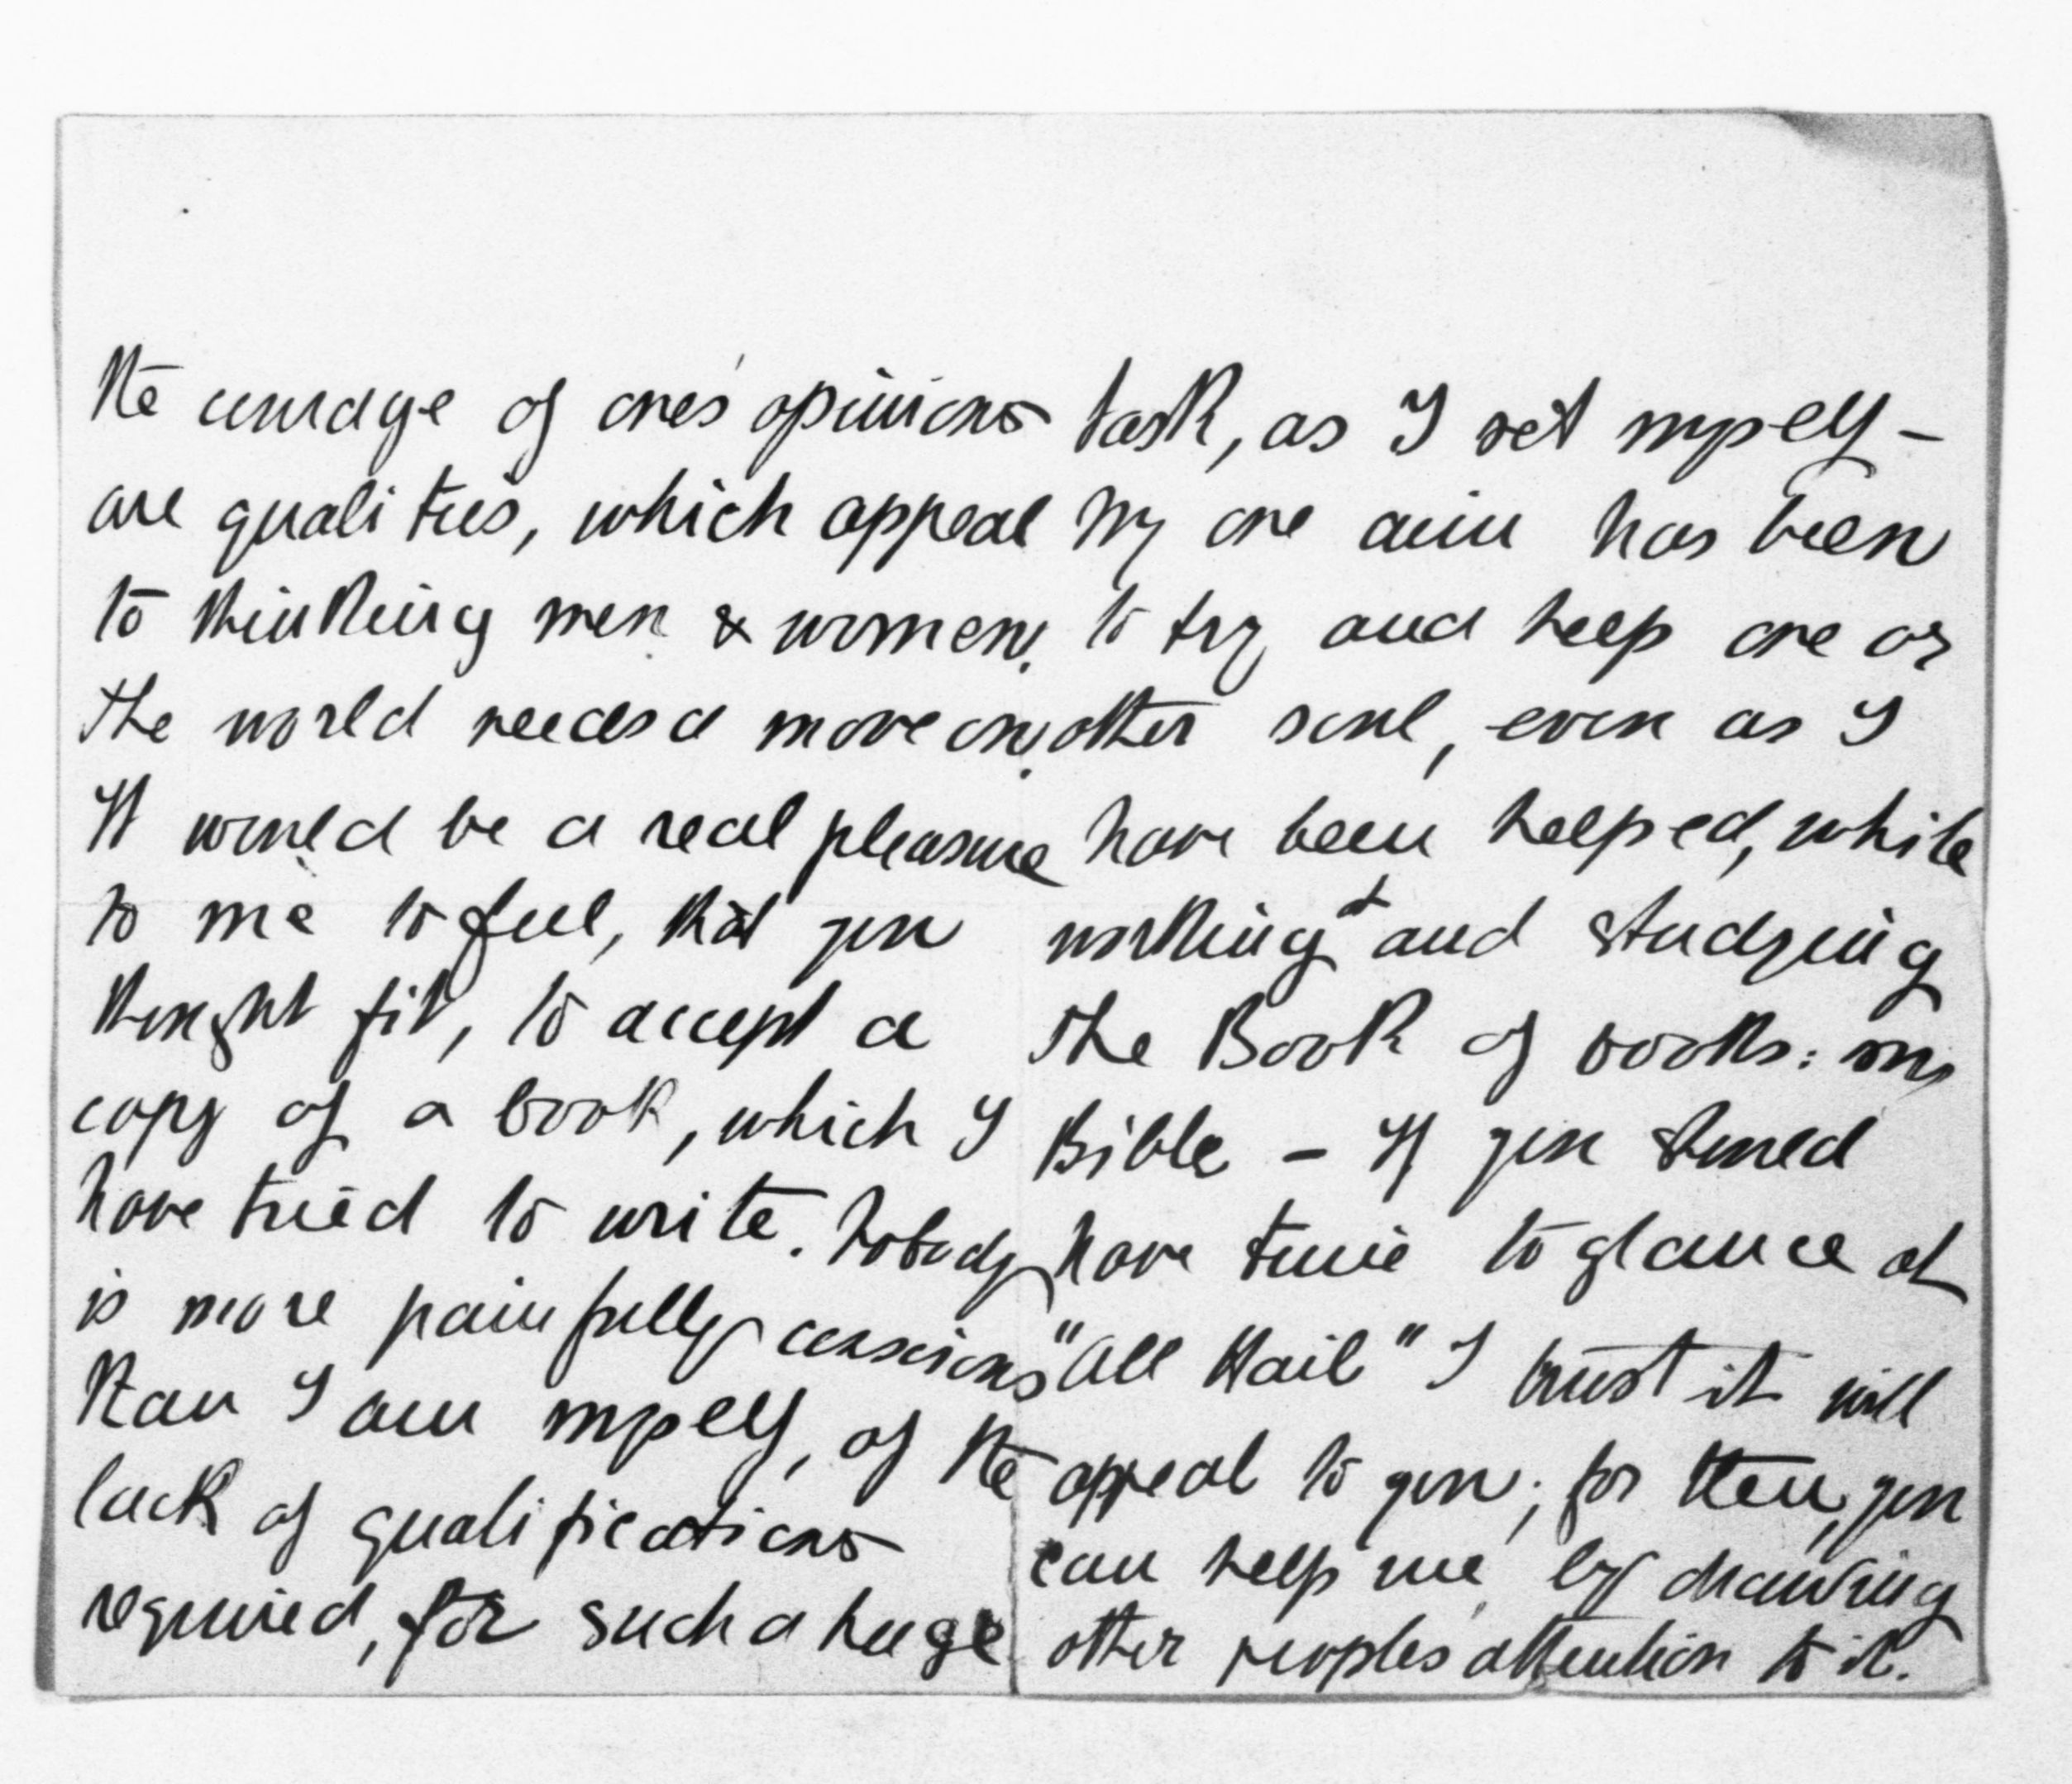 the courage of one's opinions
are qualities, which appeal
to thinking men & women.
The world needs a move on.
It would be a real pleasure
to me to feel, that you
thought fit, to accept a
copy of a book, which I
have tried to write. Nobody
is more painfully conscious
than I am myself, of the
lack of qualifications
required, for such a huge
task, as I set myself -
My one aim has been
to try and help one or
other soul, even as I
have been helped, while
working at and studying
the Book of books: our
Bible - If you should
have time to glance at
"All Hail" I trust it will
appeal to you; for then, you
can help me, by drawing
other peoples attention to it.